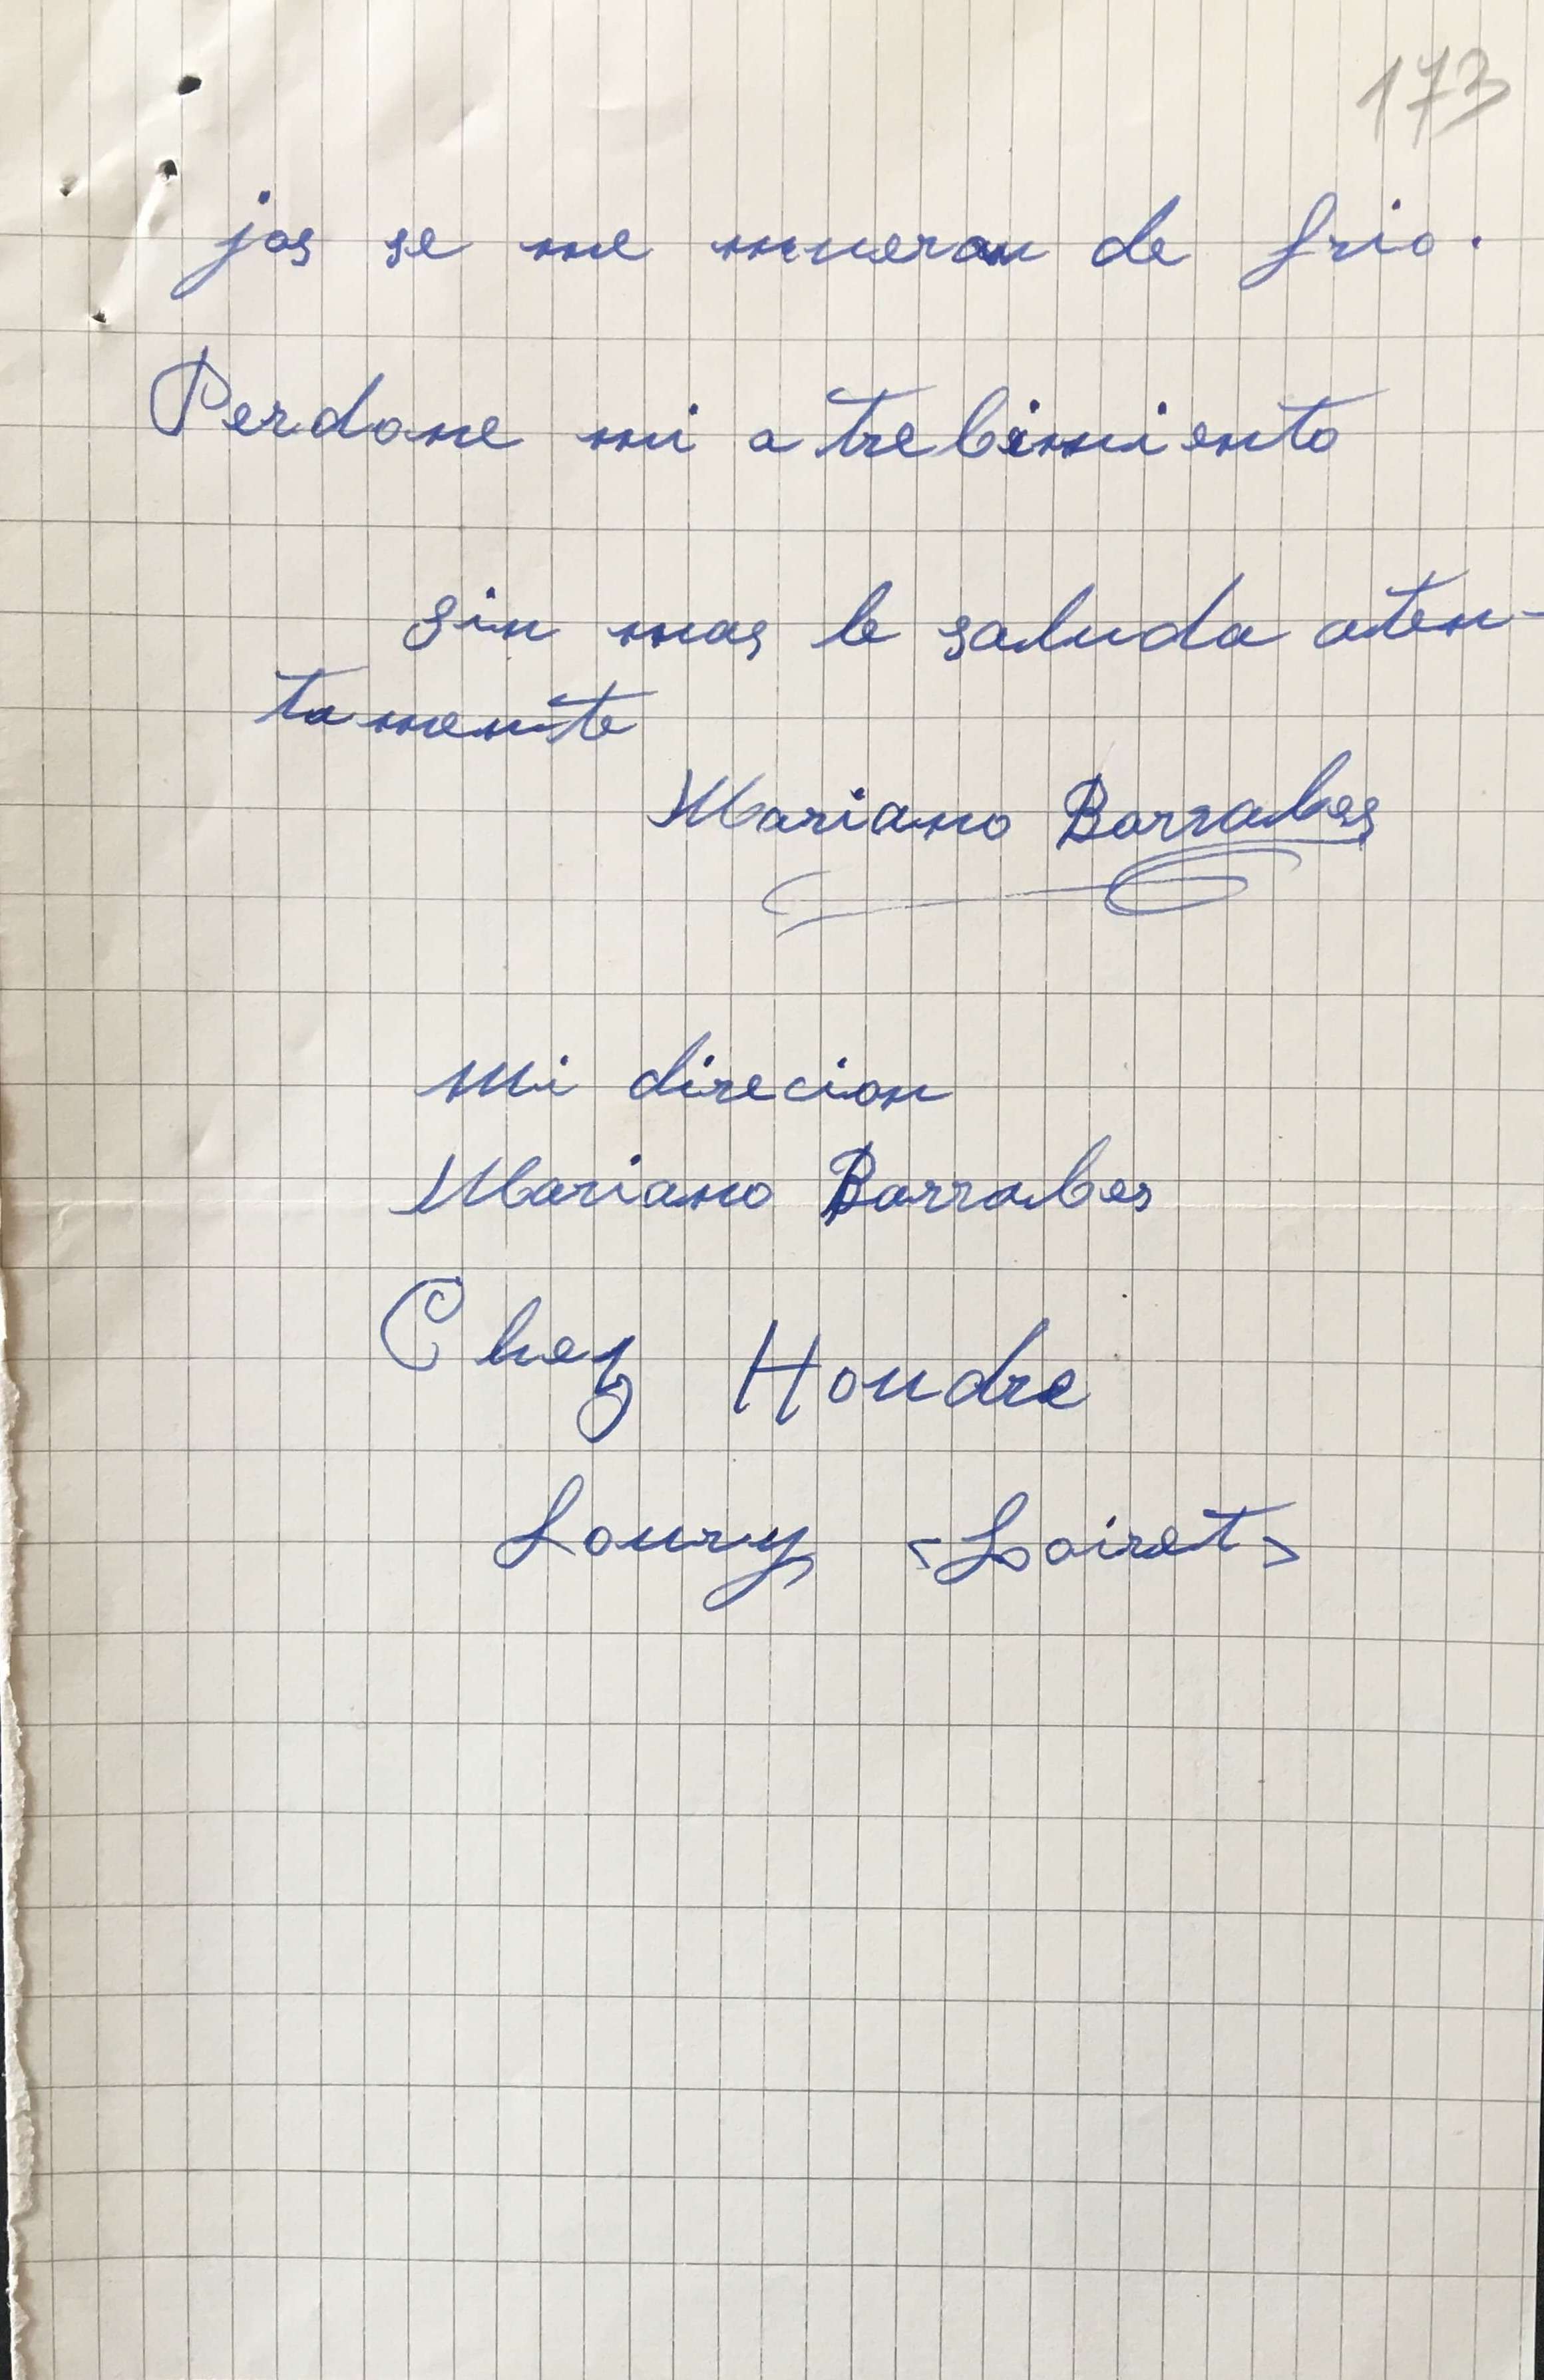 173
jos se me mueran de frio.
Perdone mi atrebimiento
sin mas le saluda aten-
tamente
Mariano Barrabes
mi direcion
Mariano Barrabes
Chez Houdre
Loury <Loiret>